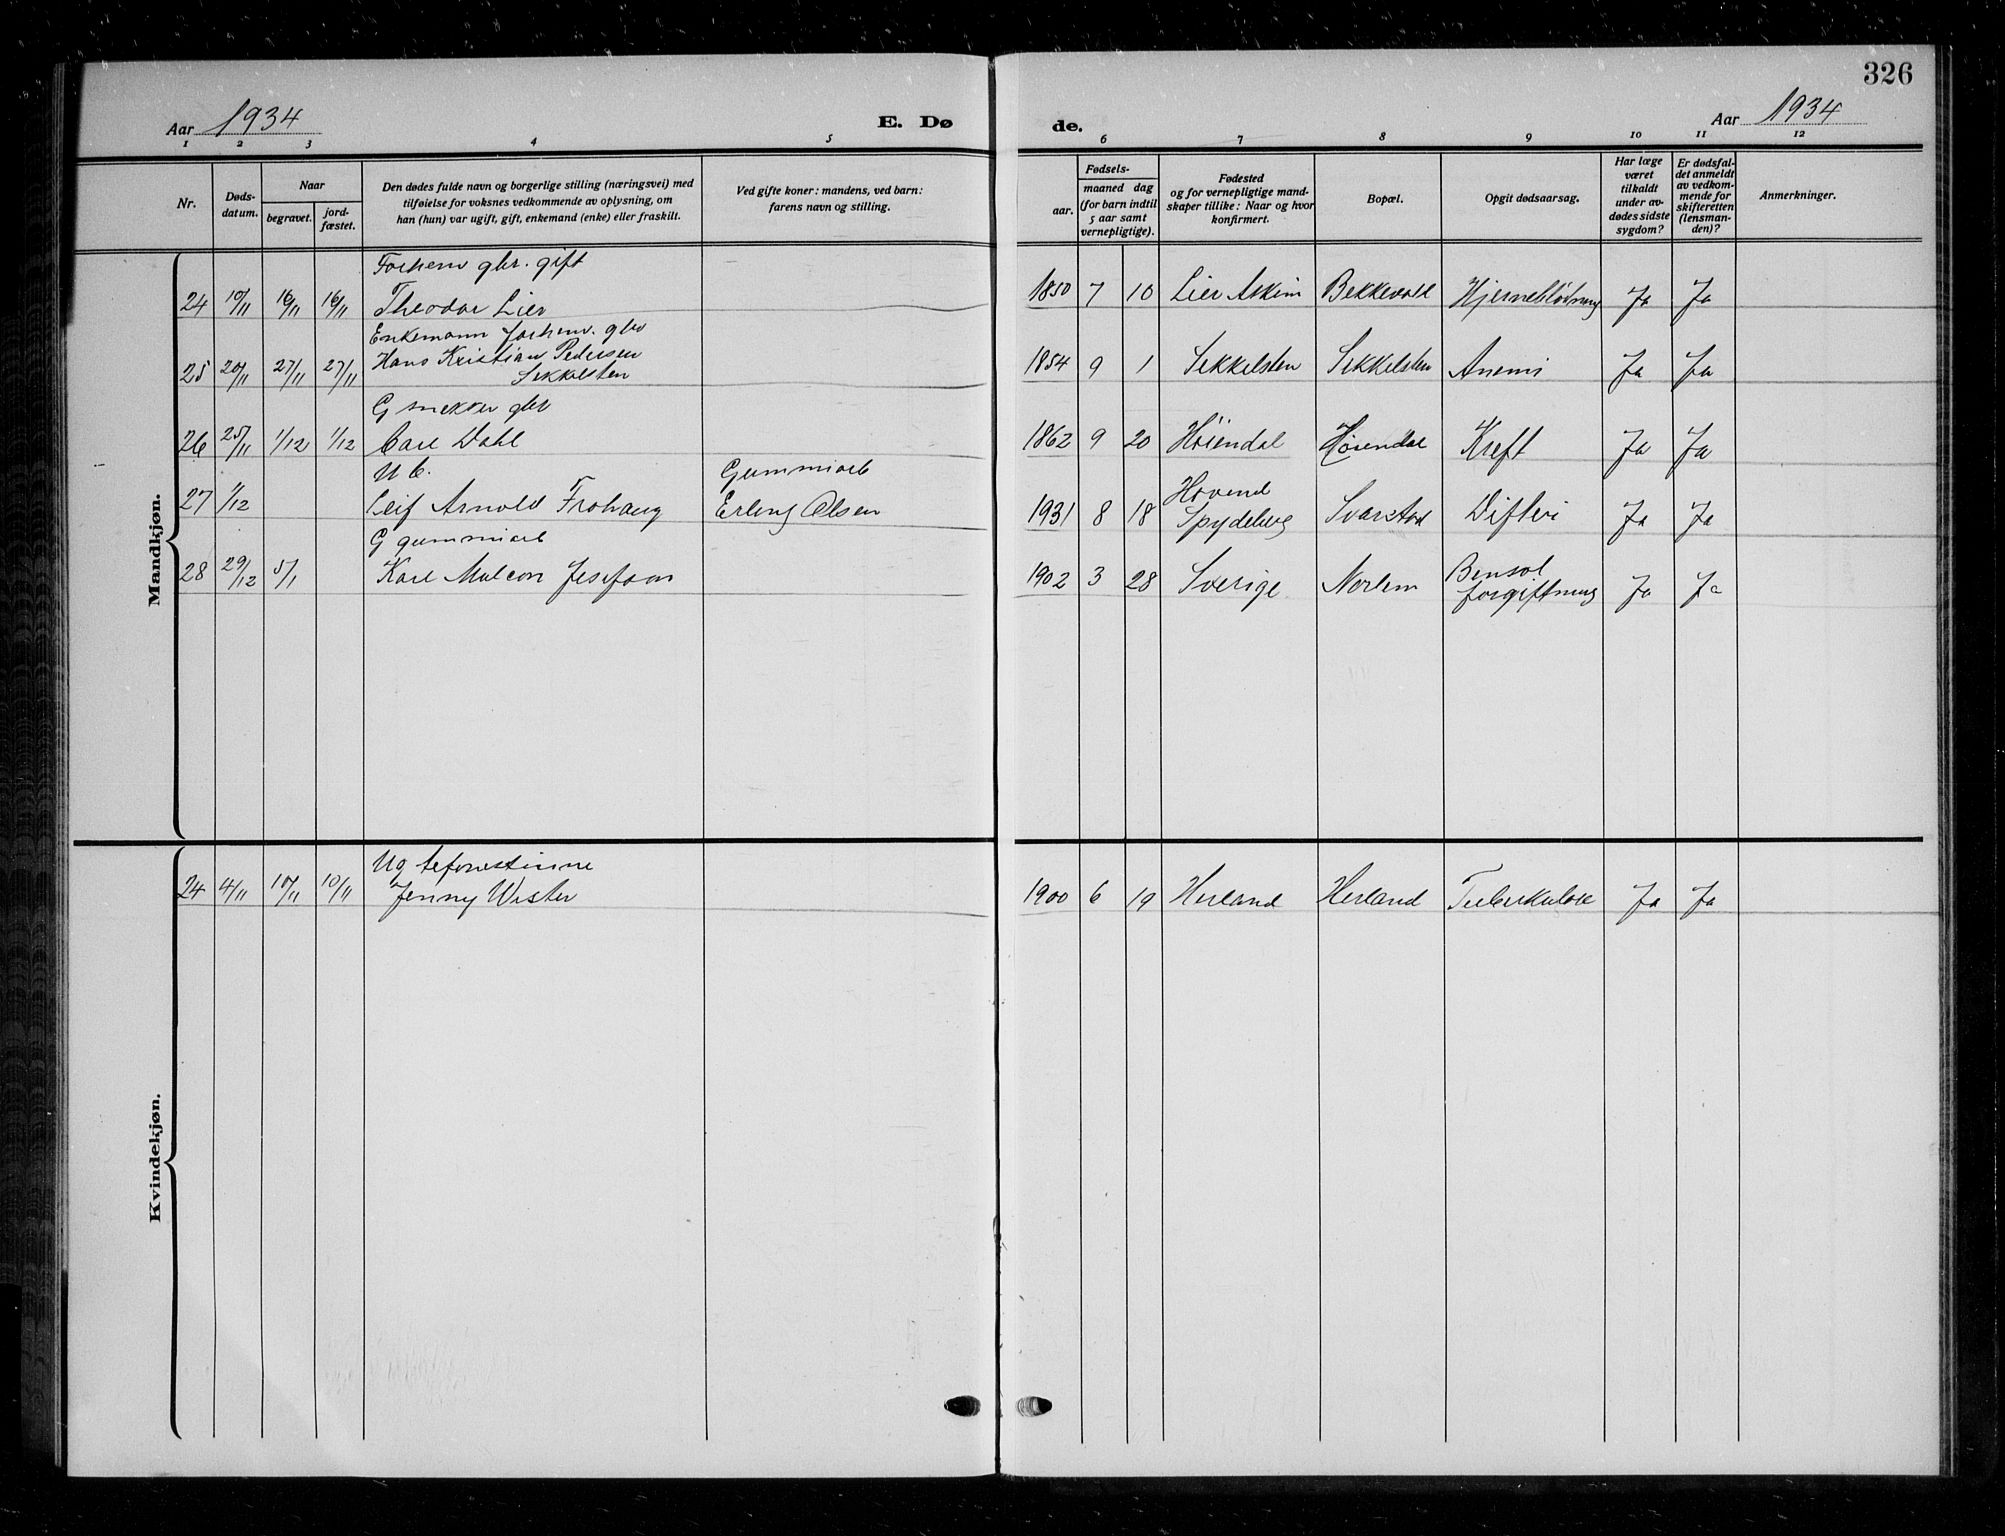 326
Aar 1934
E. Dø
de.
Aar 1934
1 2 3 4 5
6 7 8 9 10 11 12
Nr.
Døds-
datum.
Naar
begravet.
jord-
fæstet.
Den dødes fulde navn og borgerlige stilling (næringsvei) med
tilføielse for voksnes vedkommende av oplysning, om
han (hun) var ugift, gift, enkemand (enke) eller fraskilt.
Ved gifte koner: mandens, ved barn:
farens navn og stilling.
Fødsels-
aar.
maaned dag
(for barn indtil
5 aar samt
vernepligtige).
Fødested
og for vernepligtige mand-
skaper tillike: Naar og hvor
konfirmert.
Bopæl.
Opgit dødsaarsag.
Har læge
været
tilkaldt
under av-
dødes sidste
sygdom?
Er dødsfal-
det anmeldt
av vedkom-
mende for
skifteretten
(lensman-
den)?
Anmerkninger.
Mandkjøn.
Forhenv gbr. gift
24 10/11 16/11 16/11 Theodor Lier 1850 7 10 Lier Askim Bekkevold Ja Ja
Enkemann forhenv. gbr
Hans Kristian Pedersen
25 20/11 27/11 27/11 Sekkelsten 1854 9 1 Sekkelsten Sekkelsten Anemi Ja Ja
G snekker gbr
26 25/11 1/12 1/12 Carl Dahl 1862 9 20 Høiendal Høiendal Kreft Ja Ja
U b. Gummiarb
27 1/12 Leif Arnold Frohaug Erling Olsen 1931 8 18 Hovend Spydeberg Svarstad Difteri Ja Ja
G gummiarb
28 29/12 5/1 Karl Josefson 1902 3 28 Sverige Norlem Bensol
forgiftning Ja Ja
Kvindekjøn.
Ug
24 4/11 10/11 10/11 Jenny Wister 1900 6 19 Herland Herland Tuberkulose Ja Ja